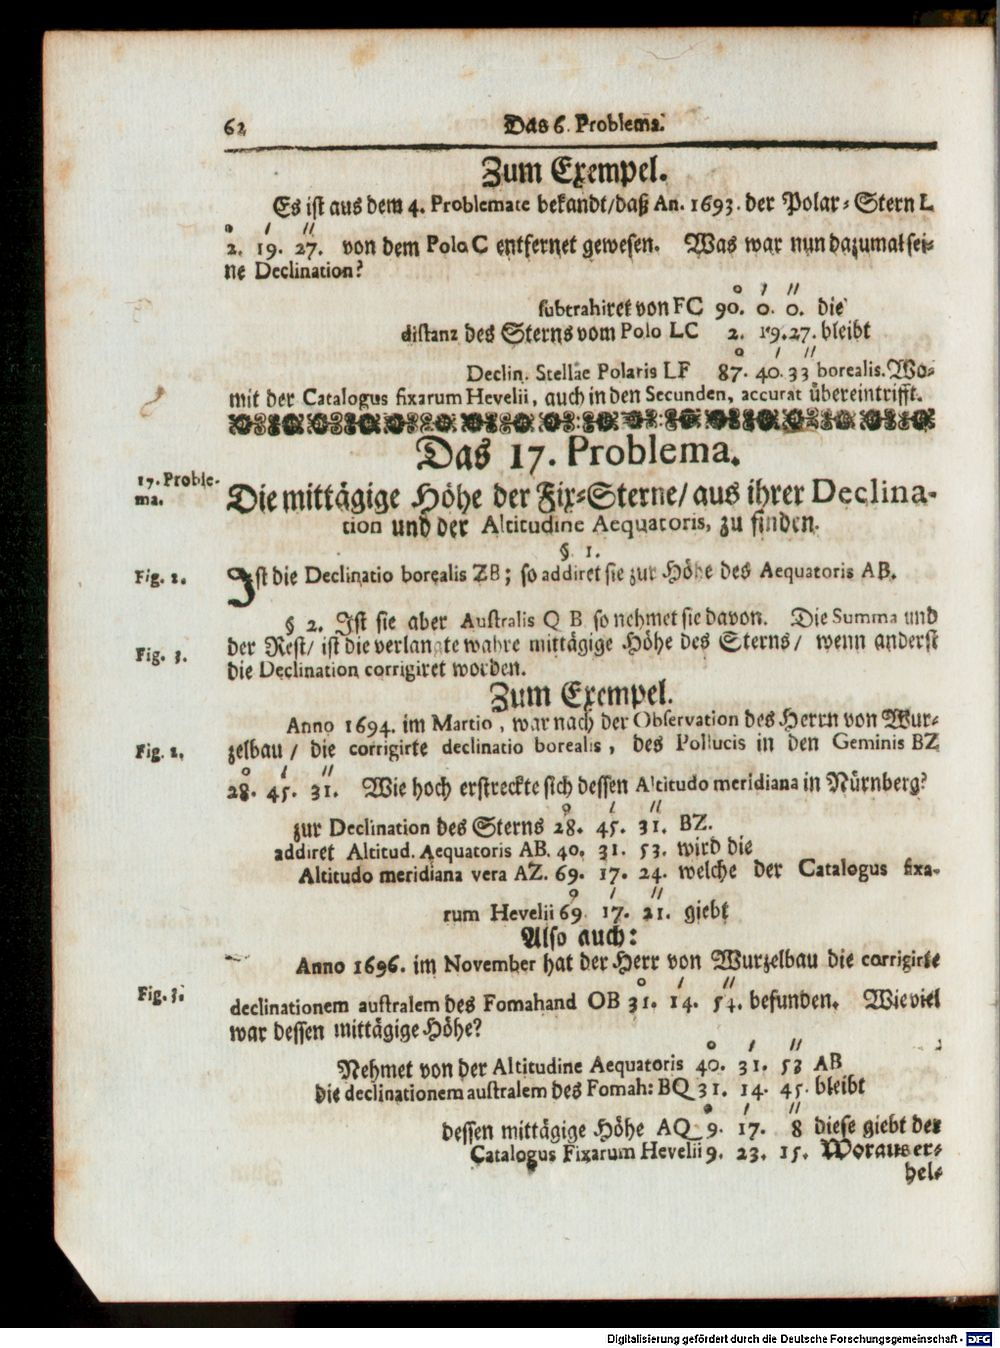 62 Das 6. Problema.
Zum Exempel.
Es ist aus dem 4. Problemate bekandt/daß An. 1693. der Polar⸗Stern L
o / //
2. 19. 27. von dem Polo C entfernet gewesen. Was war nun dazumal sei⸗
ne Declination?
o / //
subtrahiret von FC 90. 0. 0. die
distanz des Sterns vom Polo LC 2. 19. 27. bleibt
o / //
Declin. Stellae Polaris LF 87. 40. 33 borealis. Wo⸗
mit der Catalogus fixarum Hevelii, auch in den Secunden, accurat übereintrifft.
Das 17. Problema.
17. Proble-
ma.
Die mittägige Höhe der Fix⸗Sterne/ aus ihrer Declina-
tion und der Altitudine Aequatoris, zu finden.
§ 1.
Fig. 2.
Ist die Declinatio borealis ZB; so addiret sie zur Höhe des Aequatoris AB.
§ 2. Ist sie aber Australis Q B so nehmet sie davon. Die Summa und
der Rest/ ist die verlangte wahre mittägige Höhe des Sterns/ wenn anderst
Fig. 3.
die Declination corrigiret worden.
Zum Exempel.
Anno 1694. im Martio, war nach der Observation des Herrn von Wur⸗
zelbau / die corrigirte declinatio borealis, des Pollucis in den Geminis BZ
Fig. 2.
o / //
28. 45. 31. Wie hoch erstreckte sich dessen Altitudo meridiana in Nürnberg?
o / //
zur Declination des Sterns 28. 45. 31. BZ.
addiret Altitud. Aequatoris AB. 40. 31. 53. wird die
Altitudo meridiana vera AZ. 69. 17. 24. welche der Catalogus fixa-
o / //
rum Hevelii 69. 17. 21. giebt
Also auch:
Anno 1696. im November hat der Herr von Wurzelbau die corrigirte
o / //
Fig. 3.
declinationem australem des Fomahand OB 31. 14. 54. befunden. Wie viel
war dessen mittägige Höhe?
o / //
Nehmet von der Altitudine Aequatoris 40. 31. 53 AB
die declinationem australem des Fomah: BQ 31. 14. 45. bleibt
o / //
dessen mittägige Höhe AQ 9. 17. 8 diese giebt der
Catalogus Fixarum Hevelii 9. 23. 15. Woraus er⸗
hel⸗
Digitalisierung gefördert durch die Deutsche Forschungsgemeinschaft - DFG